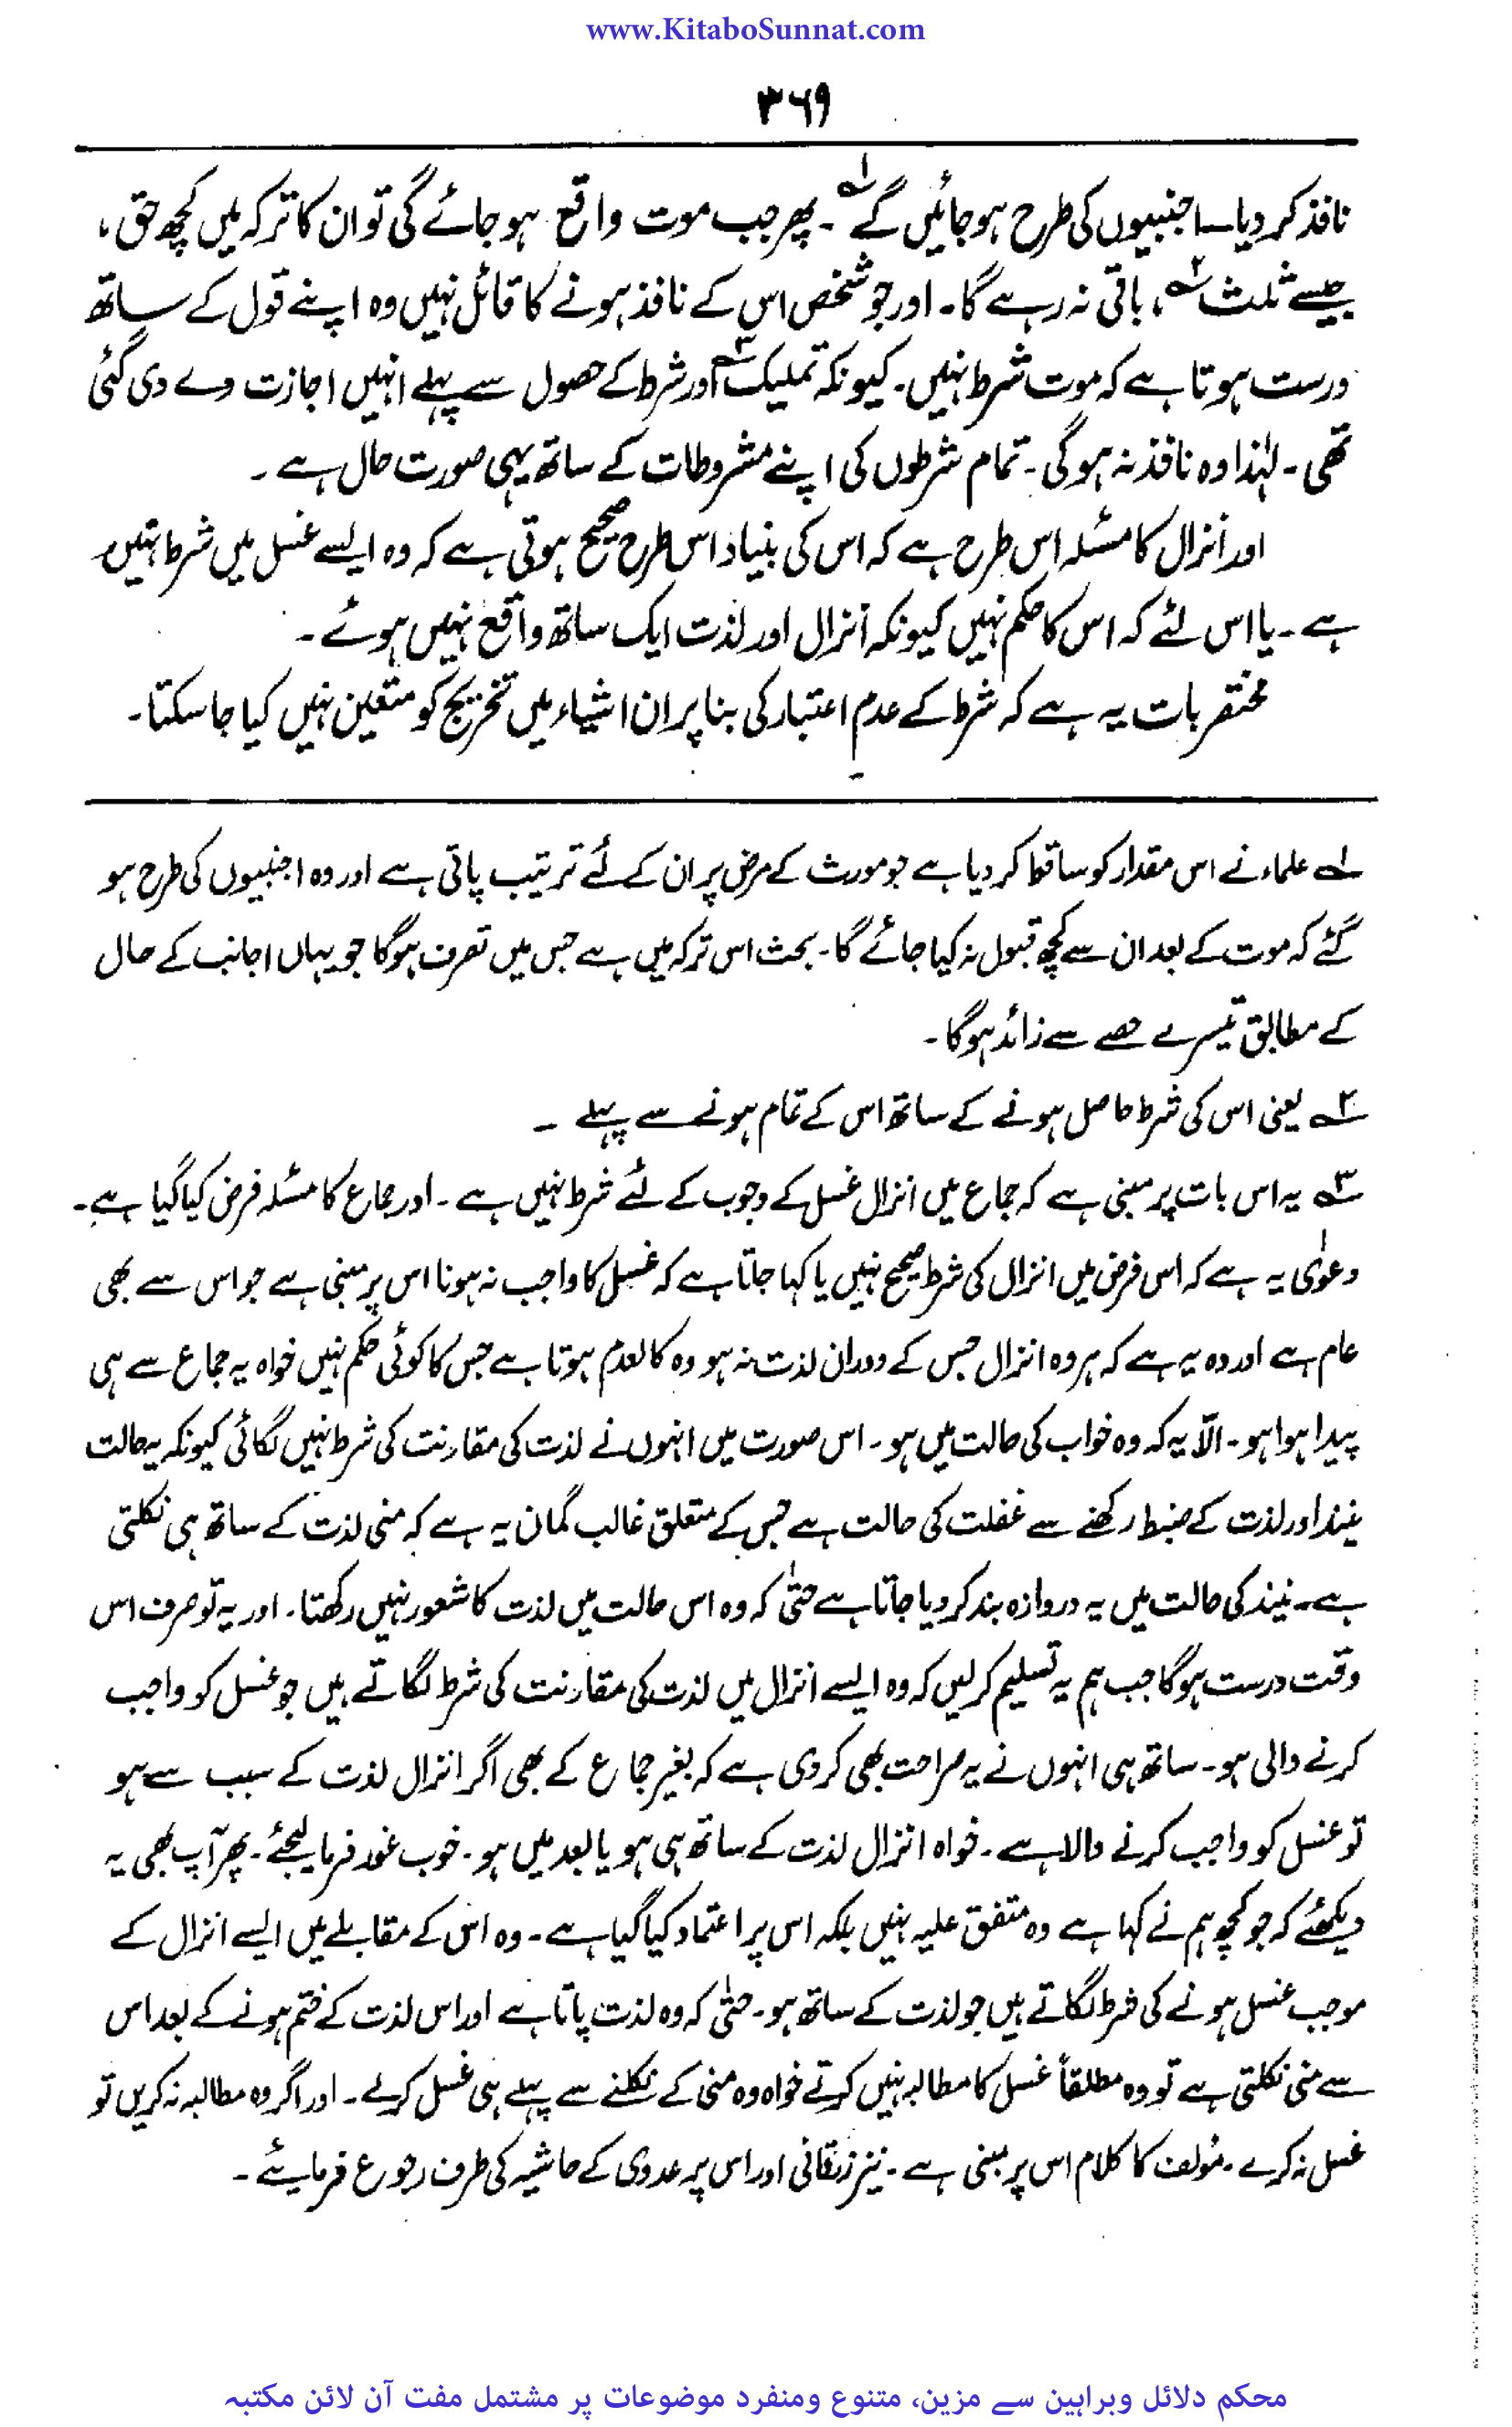 www.KitaboSunnat.com
۳۶۹
نافذ کر دیا۔ اجنبیوں کی طرح ہو جائیں گے ؎۱ ۔ پھر جب موت واقع ہو جائے گی تو ان کا ترکہ میں کچھ حق،
جیسے ثلث ؎۲، باقی نہ رہے گا۔ اور جو شخص اس کے نافذ ہونے کا قائل نہیں وہ اپنے قول کے ساتھ
درست ہوتا ہے کہ موت شرط نہیں۔ کیونکہ تملیک ؎۳ اور شرط کے حصول سے پہلے انہیں اجازت دے دی گئی
تھی۔ لہٰذا وہ نافذ نہ ہوگی۔ تمام شرطوں کی اپنے مشروطات کے ساتھ یہی صورت حال ہے ۔
اور انزال کا مسئلہ اس طرح ہے کہ اس کی بنیاد اس طرح صحیح ہوتی ہے کہ وہ ایسے غسل میں شرط نہیں
ہے۔ یا اس لئے کہ اس کا حکم نہیں کیونکہ انزال اور لذت ایک ساتھ واقع نہیں ہوئے ۔
مختصر بات یہ ہے کہ شرط کے عدم اعتبار کی بنا پر ان اشیاء میں تخریج کو متعین نہیں کیا جا سکتا۔
؎۱ علماء نے اس مقدار کو ساقط کر دیا ہے جو مورث کے مرض پر ان کے لئے ترتیب پاتی ہے اور وہ اجنبیوں کی طرح ہو
گئے کہ موت کے بعد ان سے کچھ قبول نہ کیا جائے گا۔ بحث اس ترکہ میں ہے جس میں تصرف ہوگا جو یہاں اجانب کے حال
کے مطابق تیسرے حصے سے زائد ہوگا۔
؎۲ یعنی اس کی شرط حاصل ہونے کے ساتھ اس کے تمام ہونے سے پہلے ۔
؎۳ یہ اس بات پر مبنی ہے کہ جماع میں انزال غسل کے وجوب کے لئے شرط نہیں ہے۔ اور جماع کا مسئلہ فرض کیا گیا ہے۔
دعوٰی یہ ہے کہ اس فرض میں انزال کی شرط صحیح نہیں یا کہا جاتا ہے کہ غسل کا واجب نہ ہونا اس پر مبنی ہے جو اس سے بھی
عام ہے اور وہ یہ ہے کہ ہر وہ انزال جس کے دوران لذت نہ ہو وہ کالعدم ہوتا ہے جس کا کوئی حکم نہیں خواہ یہ جماع سے ہی
پیدا ہوا ہو۔ الّا یہ کہ وہ خواب کی حالت میں ہو۔ اس صورت میں انہوں نے لذت کی مقارنت کی شرط نہیں لگائی کیونکہ یہ حالت
نیند اور لذت کے ضبط رکھنے سے غفلت کی حالت ہے جس کے متعلق غالب گمان یہ ہے کہ منی لذت کے ساتھ ہی نکلتی
ہے۔ نیند کی حالت میں یہ دروازہ بند کر دیا جاتا ہے حتیٰ کہ وہ اس حالت میں لذت کا شعور نہیں رکھتا۔ اور یہ تو صرف اس
وقت درست ہوگا جب ہم یہ تسلیم کر لیں کہ وہ ایسے انزال میں لذت کی مقارنت کی شرط لگاتے ہیں جو غسل کو واجب
کرنے والی ہو۔ ساتھ ہی انہوں نے یہ صراحت بھی کر دی ہے کہ بغیر جماع کے بھی اگر انزال لذت کے سبب سے ہو
تو غسل کو واجب کرنے والا ہے۔ خواہ انزال لذت کے ساتھ ہی ہو یا بعد میں ہو۔ خوب غور فرما لیجئے۔ پھر آپ بھی یہ
دیکھئے کہ جو کچھ ہم نے کہا ہے وہ متفق علیہ نہیں بلکہ اس پر اعتماد کیا گیا ہے۔ وہ اس کے مقابلے میں ایسے انزال کے
موجب غسل ہونے کی شرط لگاتے ہیں جو لذت کے ساتھ ہو۔ حتٰی کہ وہ لذت پاتا ہے اور اس لذت کے ختم ہونے کے بعد اس
سے منی نکلتی ہے تو وہ مطلقاً غسل کا مطالبہ نہیں کرتے خواہ وہ منی کے نکلنے سے پہلے ہی غسل کر لے۔ اور اگر وہ مطالبہ نہ کریں تو
غسل نہ کرے۔ مؤلف کا کلام اس پر مبنی ہے۔ نیز زرقانی اور اس پر عدوی کے حاشیہ کی طرف رجوع فرمایئے ۔
محکم دلائل وبراہین سے مزین، متنوع ومنفرد موضوعات پر مشتمل مفت آن لائن مکتبہ